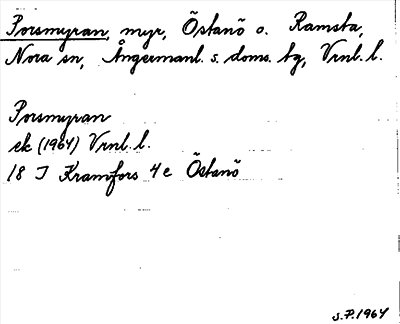 Porsmyran, myr, Östanö o. Ramsta,
Nora sn, Ångermanl. s. doms. tg, Vrnl. l.
Porsmyran
ek (1964) Vrnl. l.
18 I Kramfors 4 c Östanö
S.P. 1964